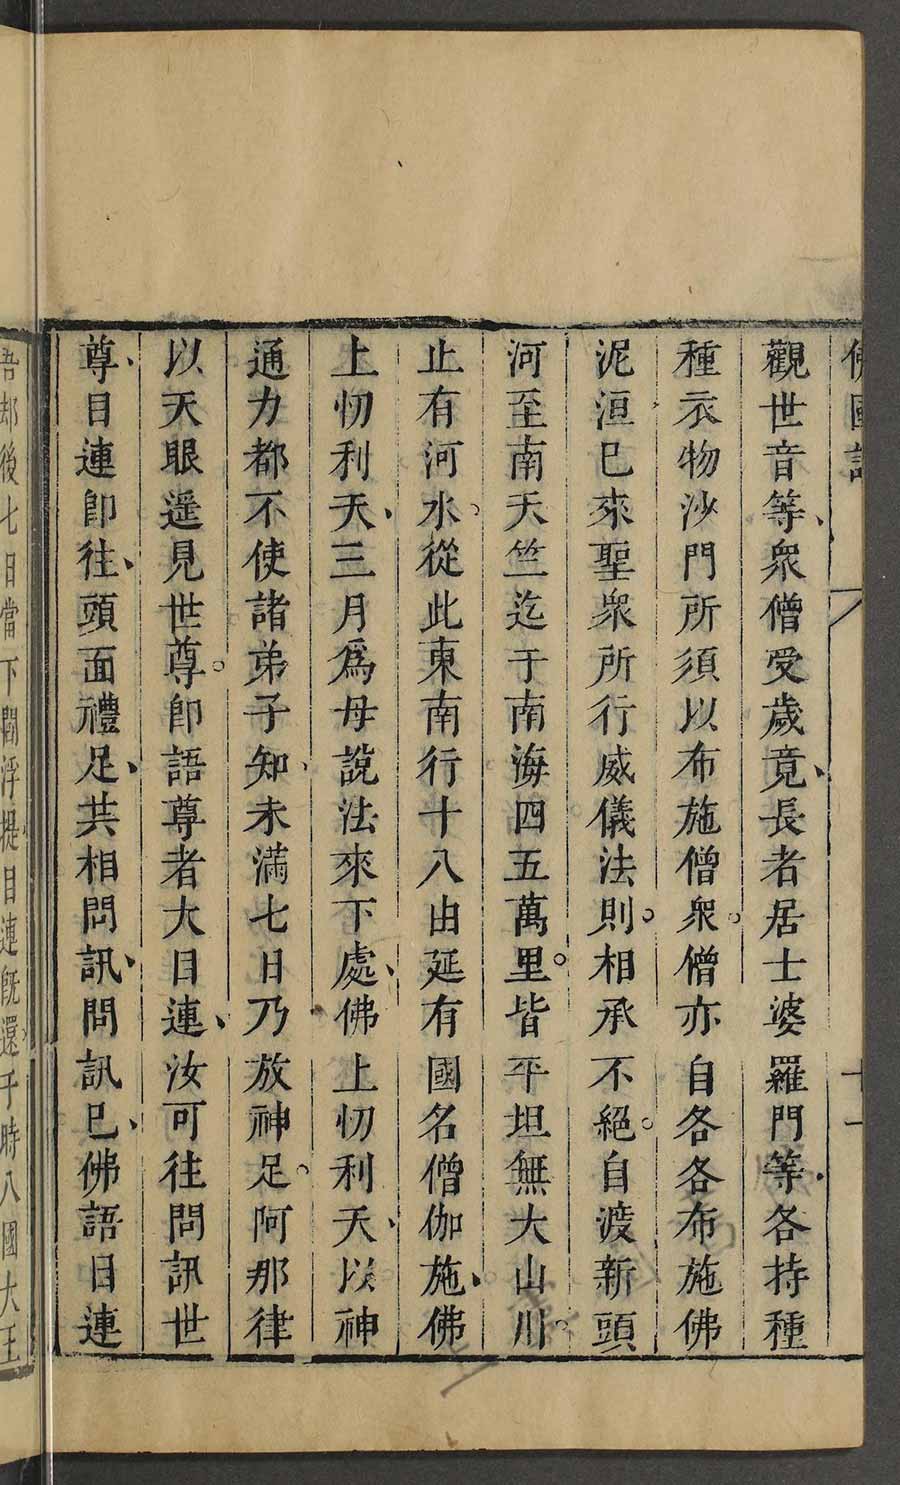 佛國記
十一
觀世音等、衆僧受歲竟、長者居士婆羅門等、各持種
種衣物沙門所須以布施僧衆。僧亦自各各布施佛
泥洹已來聖衆所行威儀法則。相承不絕。自渡新頭
河至南天竺迄于南海四五萬里。皆平坦無大山川。
止有河水。從此東南行十八由延有國名僧伽施、佛
上忉利天、三月爲母說法來下處、佛上忉利天、以神
通力都不使諸弟子知、未滿七日乃放神足。阿那律
以天眼遥見世尊。卽語尊者大目連、汝可往問訊世
尊、目連卽往、頭面禮足、共相問訊、問訊已、佛語目連
吾却後七日當下閻浮提目連旣還于時八國大王